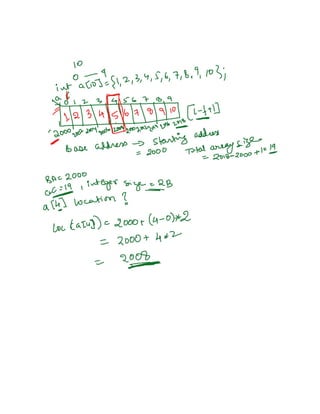 10
0 — 9
int a[10]={1,2,3,4,5,6,7,8,9,10};
0 1 2 3 4 5 6 7 8 9
1 2 3 4 5 6 7 8 9 10 [l-f+1]
2000 2018
Base address → starting address
= 2000
Total array size
= 2018-2000+1=19
BA=2000
=19, integer size = 2B
a[4] location ?
Loc (a[4]) = 2000+(4-0)*2
= 2000+ 4*2
= 2008